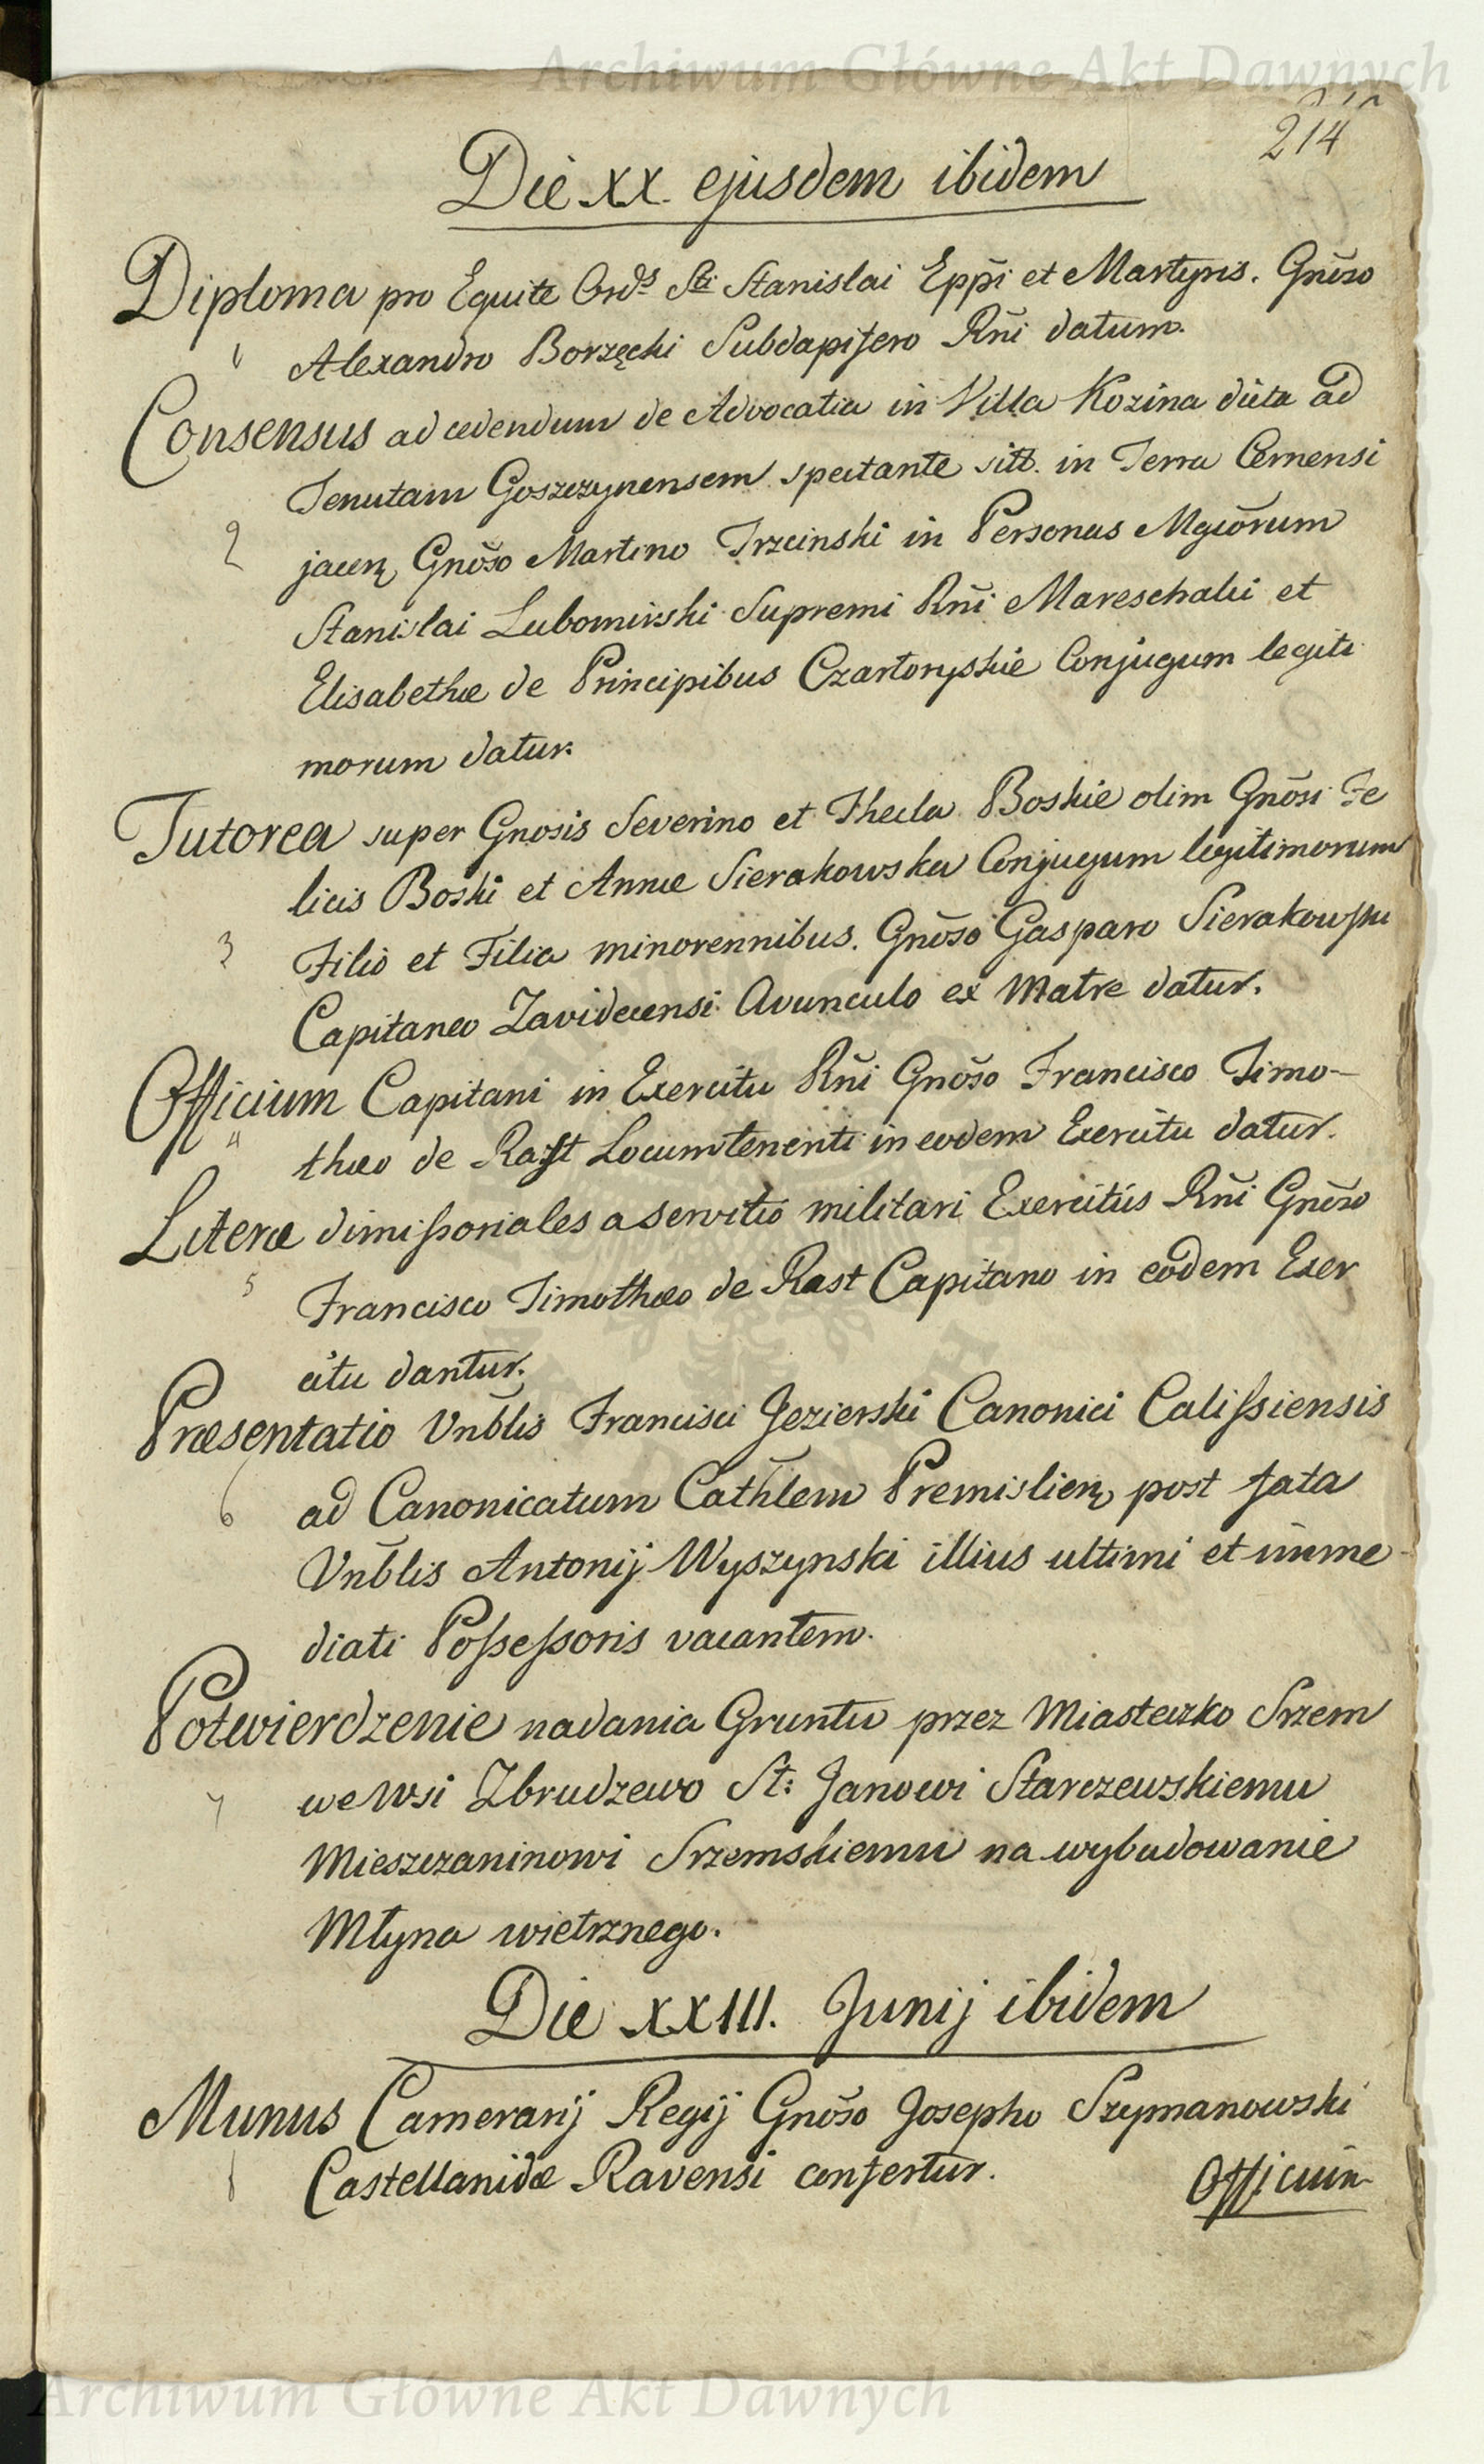 Archiwum Główne Akt Dawnych
214
Die XX. ejusdem ibidem
Diploma pro Equite Ord̄s Sti Stanislai Epp̄i et Martyris. Gnōso
Alexandro Borzęcki Subdapifero Rn̄i datum.
Consensus ad cedendum de Advocatia in Villa Kozina dicta ad
Tenutam Goszczynensem spectante sitt. in Terra Cernensi
2
jacen̄ Gnōso Martino Trzcinski in Personas Mgcōrum
Stanislai Lubomirski Supremi Rn̄i Mareschalci et
Elisabethæ de Principibus Czartoryskie Conjugum legiti
morum datur.
Tutorea super Gnosis Severino et Thecla Boskie olim Gnōsi Fe
licis Boski et Annæ Sierakowska Conjugum legitimorum
3
Filio et Filia minorennibus. Gnōso Gasparo Sierakowski
Capitaneo Zavidecensi Avunculo ex Matre datur.
Officium Capitani in Exercitu Rn̄i Gnōso Francisco Timo-
4
theo de Rast Locumtenenti in eodem Exercitu datur.
Literæ dimissoriales a servitio militari Exercitûs Rn̄i Gnōso
5
Francisco Timotheo de Rast Capitano in eodem Exer
citu dantur.
Præsentatio Vnb̄lis Francisci Jezierski Canonici Calissiensis
6
ad Canonicatum Cathl̄em Premislien̄ post fata
Vnb̄lis Antonij Wyszynski illius ultimi et imme-
diati Possessoris vacantem.
Potwierdzenie nadania Gruntu przez Miasteczko Srzem
7
we Wsi Zbrudzewo St: Janowi Starczewskiemu
Mieszczaninowi Srzemskiemu na wybudowanie
Młyna wietrznego.
Die XXIII. Junij ibidem
Munus Camerarij Regij Gnōso Josepho Szymanowski
1
Castellanidæ Ravensi confertur.
Officium
Archiwum Główne Akt Dawnych